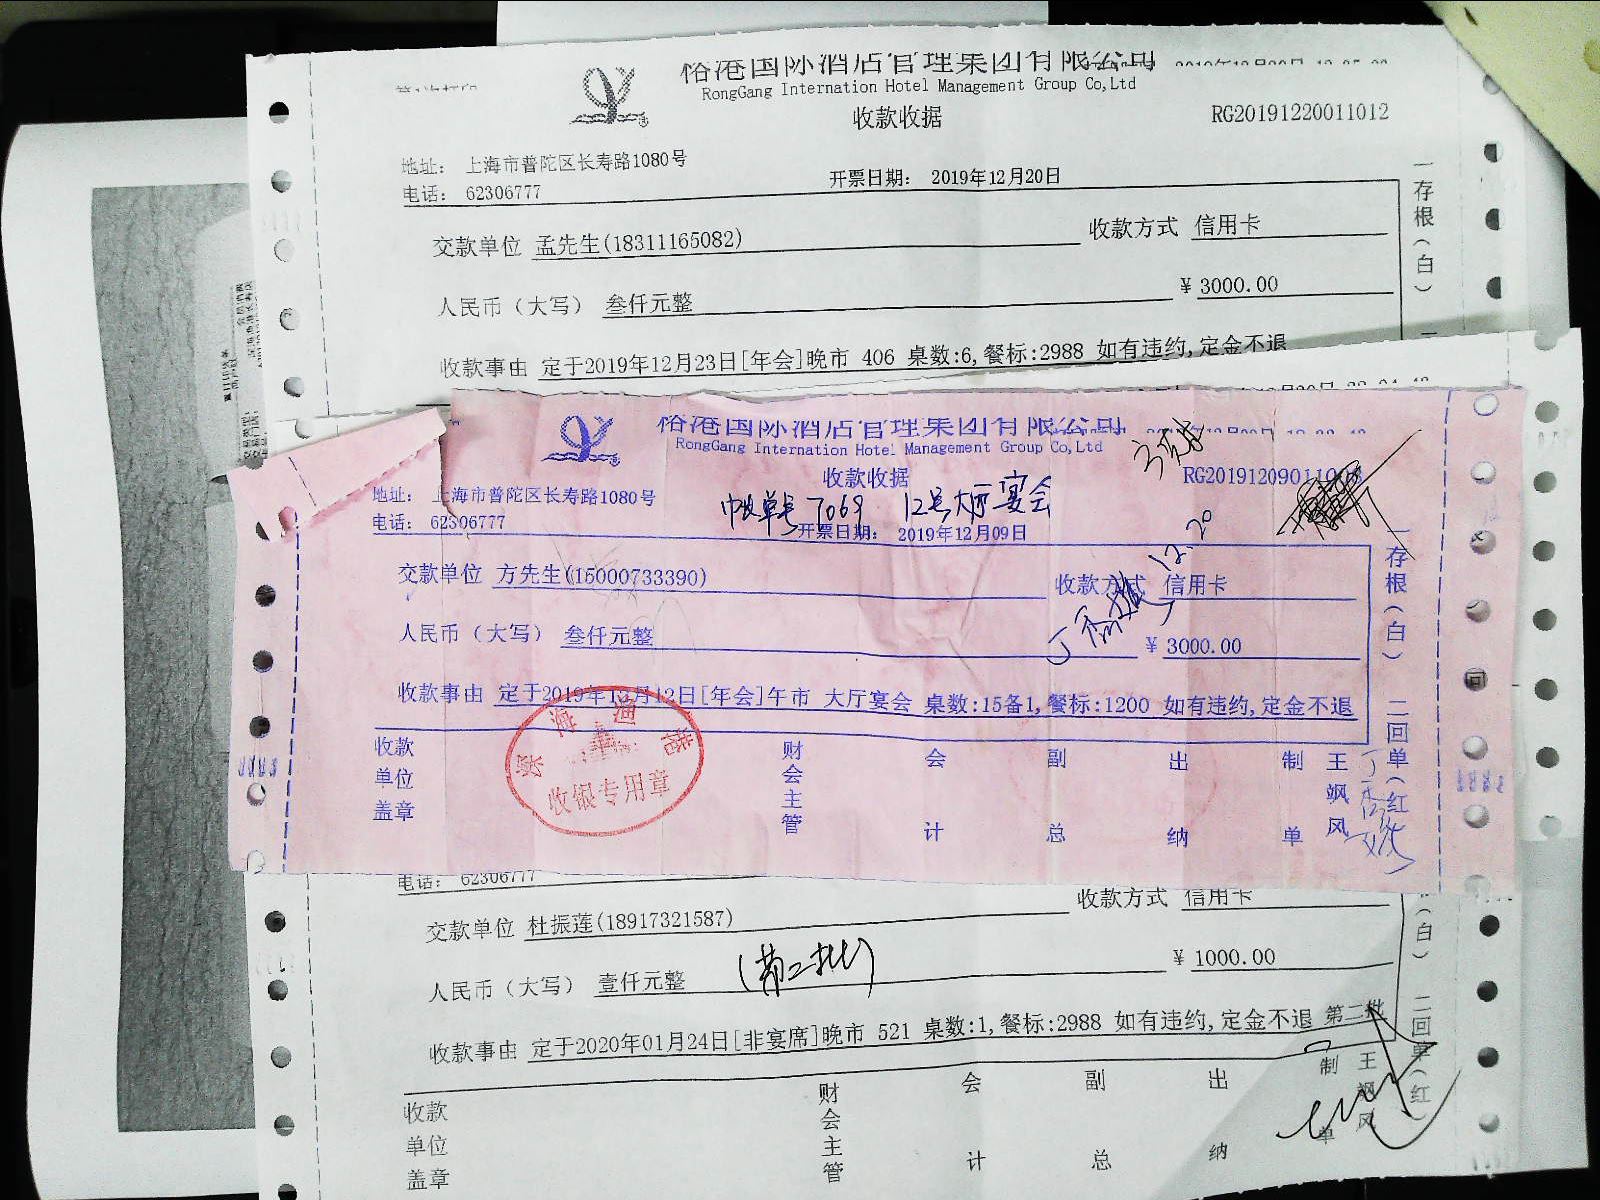 裕港国际酒店管理集团有限公司
RongGang Internation Hotel Management Group Co,Ltd
收款收据
RG20191220011012
地址： 上海市普陀区长寿路1080号
电话： 62306777
开票日期： 2019年12月20日
交款单位 孟先生(18311165082)
收款方式 信用卡
人民币（大写） 叁仟元整
¥ 3000.00
收款事由 定于2019年12月23日[年会]晚市 406 桌数:6,餐标:2988 如有违约,定金不退
一存根（白）
裕港国际酒店管理集团有限公司
RongGang Internation Hotel Management Group Co,Ltd
收款收据
地址： 上海市普陀区长寿路1080号
电话： 62306777
单号 7069 12号大厅宴会
开票日期： 2019年12月09日
12.20
交款单位 方先生(15000733390)
收款方式 信用卡
人民币（大写） 叁仟元整
¥ 3000.00
收款事由 定于2019年12月12日[年会]午市 大厅宴会 桌数:15备1,餐标:1200 如有违约,定金不退
一存根（白） 二回单（红
收款单位盖章
财会主管
会计
副总
出纳
制单
王飒风
收银专用章
电话： 62306777
交款单位 杜振莲(18917321587)
收款方式 信用卡
人民币（大写） 壹仟元整
(第二批)
¥ 1000.00
收款事由 定于2020年01月24日[非宴席]晚市 521 桌数:1,餐标:2988 如有违约,定金不退 第二批
（白） 二回单（红）
收款单位盖章
财会主管
会计
副总
出纳
制单
王飒风